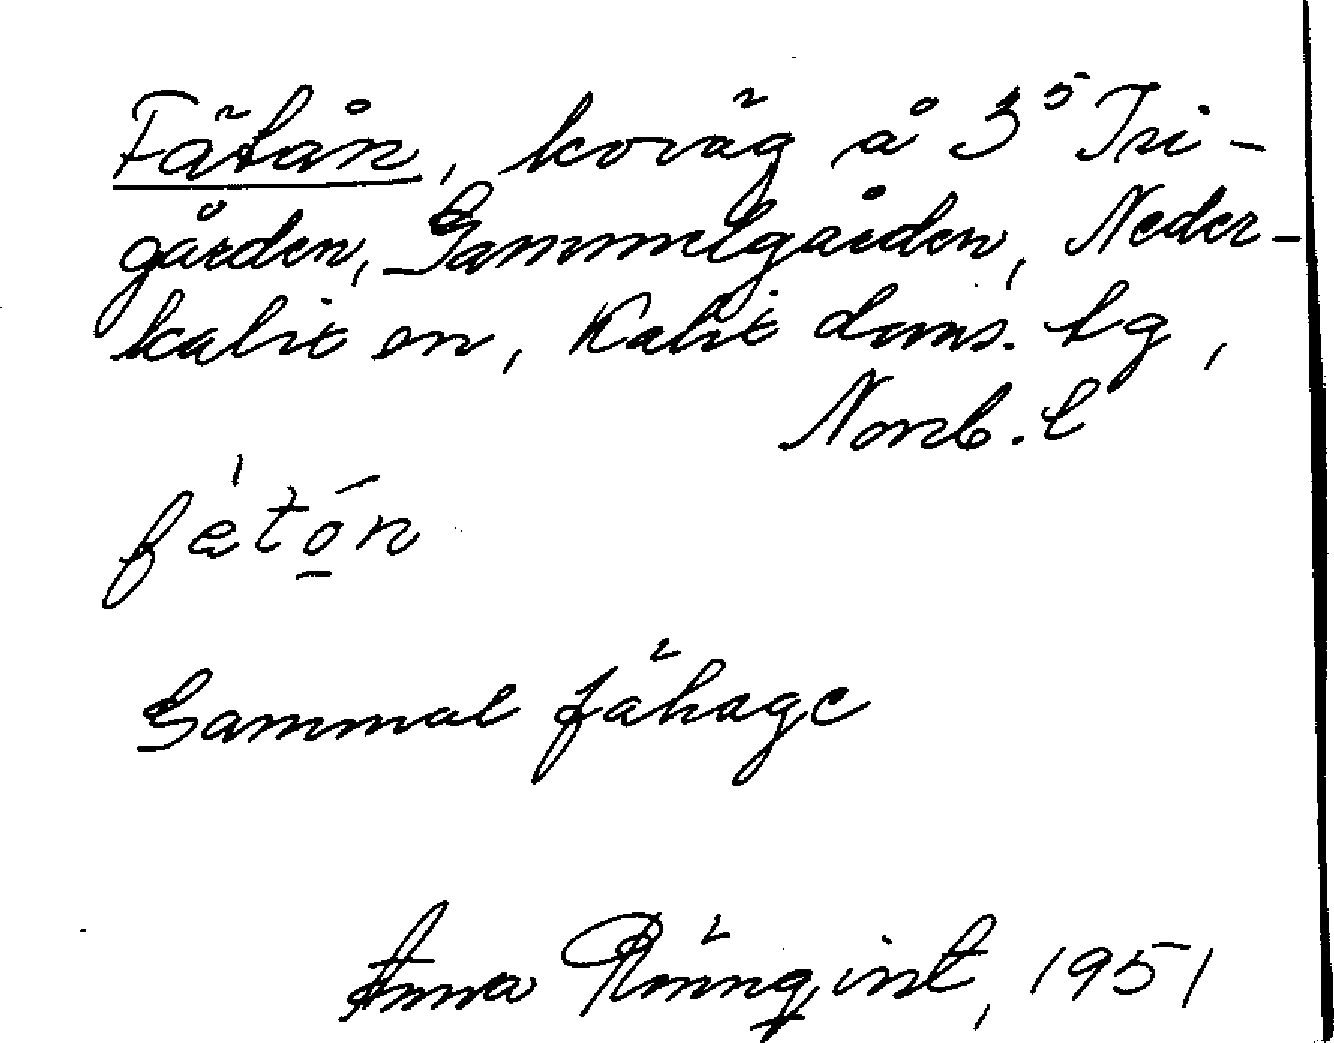 Fätån, koväg å 3⁵ Tri-
gården, Gammelgården, Neder-
kalix sn, Kalix doms. tg,
Norrb. l
fè̱tō̱n
Gammal fähage
Anna Rönnqvist, 1951